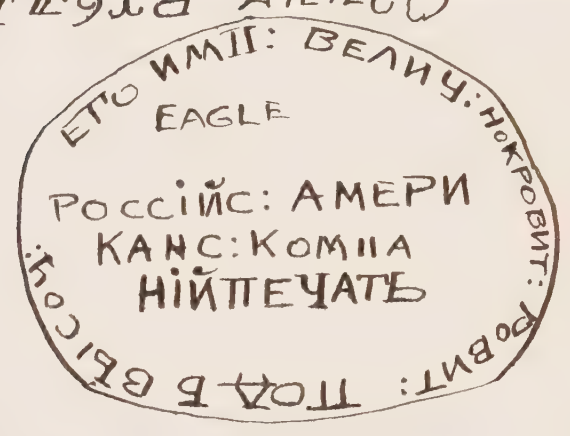 ПОДЪ ВЫСОЧ: ЕГО ИМП: ВЕЛИЧ: НОКРОВИТ: РОВИТ:
EAGLE
РОССІЙС: АМЕРИ
КАНС: КОМПА
НІЙ ПЕЧАТЬ